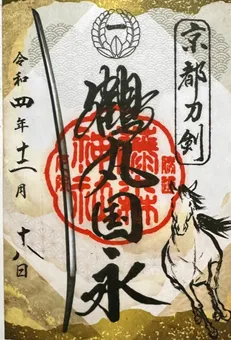 京都刀剣
鶴丸国永
令和四年十二月十八日
藤森
神社